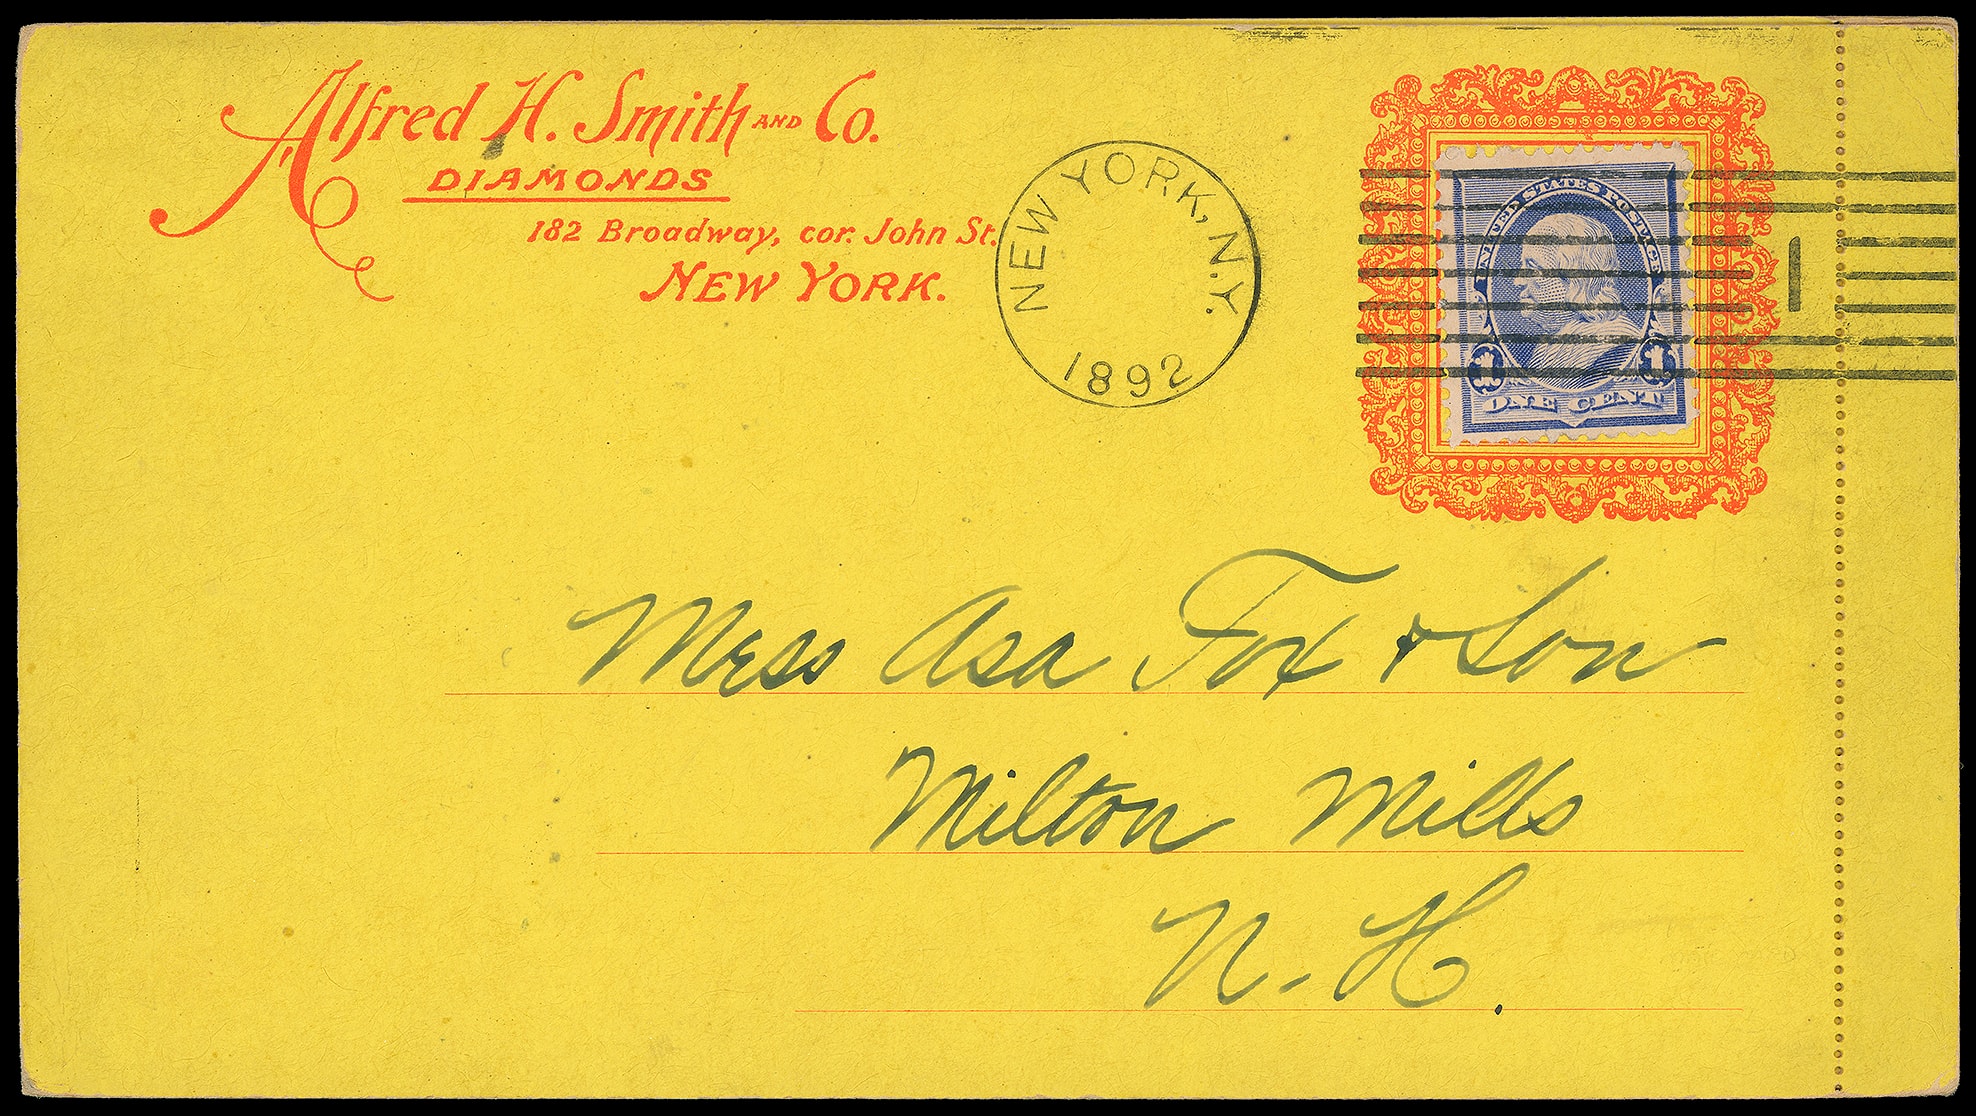 Alfred H. Smith AND Co.
DIAMONDS
182 Broadway, cor. John St.
NEW YORK.
NEW YORK, N.Y.
1892
1
UNITED STATES POSTAGE
1 1
ONE CENT
Mess Asa Fox & Son
Milton Mills
N. H.